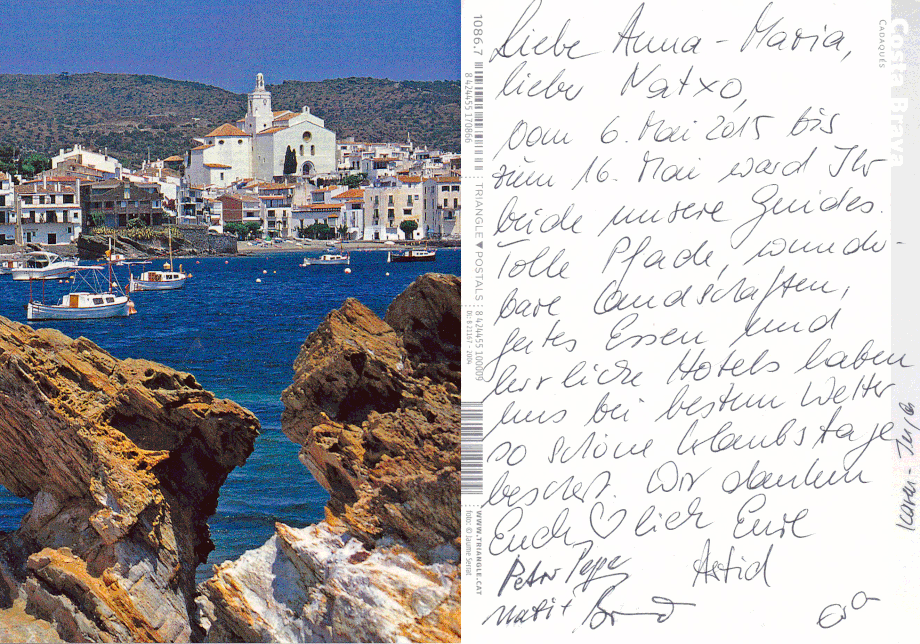 Liebe Anna-Maria,
lieber Natxo,
vom 6. Mai 2015 bis
zum 16. Mai ward Ihr
beide unsere Guides.
Tolle Pfade, wunder-
bare Landschaften,
gutes Essen und
herrliche Hotels haben
uns bei bestem Wetter
so schöne Urlaubstage
beschert. Wir danken
Euch ♡lich Eure
Astrid
Eva
Karen
Costa Brava
CADAQUÉS
1086.7
8 424455 170866
TRIANGLE ▼ POSTALS : 8 424455 100009
DL: B 21167 - 2004
WWW.TRIANGLE.CAT
foto: © Jaume Serrat